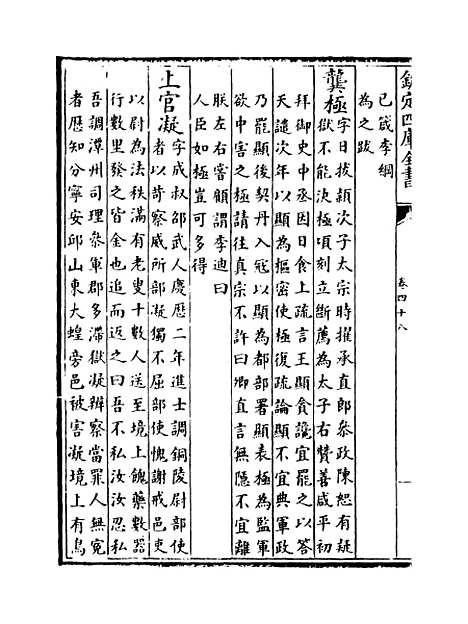 欽定四庫全書
卷四十八
已箴李綱
為之跋
龔極字日拔頴次子太宗時擢承直郎叅政陳恕有疑
獄不能決極頃刻立斷薦為太子右贊善咸平初
拜御史中丞因日食上疏言王顯貪讒宜罷之以答
天譴次年以顯為樞密使極復疏論顯不宜典軍政
乃罷顯後契丹入冦以顯為都部署顯表極為監軍
欲中害之極請往真宗不許曰卿直言無隱不宜離
朕左右嘗顧謂李迪曰
人臣如極豈可多得
上官凝字成叔邵武人慶歴二年進士調銅陵尉部使
者以苛察威所部凝獨不屈部使愧謝戒邑吏
以尉為法秩滿有老叟十數人送至境上餽藥數器
行數里發之皆金也追而返之曰吾不私汝汝忍私
吾調漳州司理叅軍郡多滯獄凝辨察當罪人無寃
者歴知分寧安邱山東大蝗旁邑被害凝境上有鳥